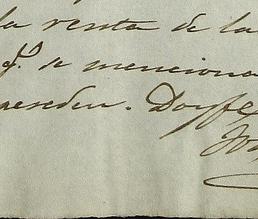 la renta de la
q.e de menciona
preceden. Doy fe